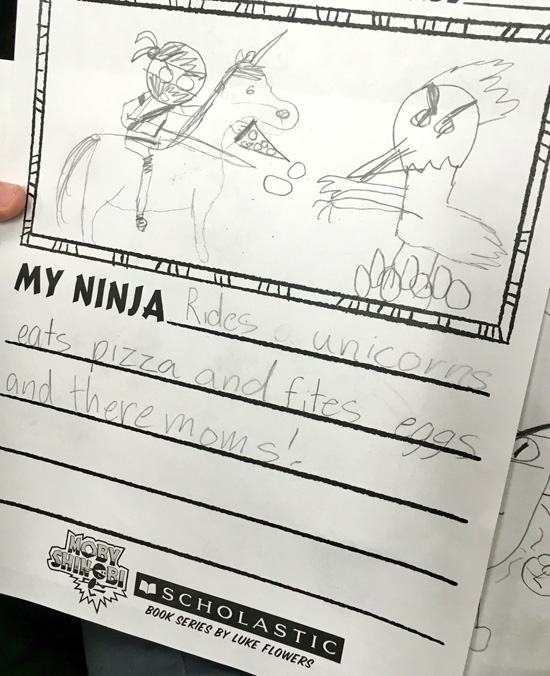 MY NINJA Rides a unicorns
eats pizza and fites eggs
and there moms!
MOBY
SHINOBI
SCHOLASTIC
BOOK SERIES BY LUKE FLOWERS